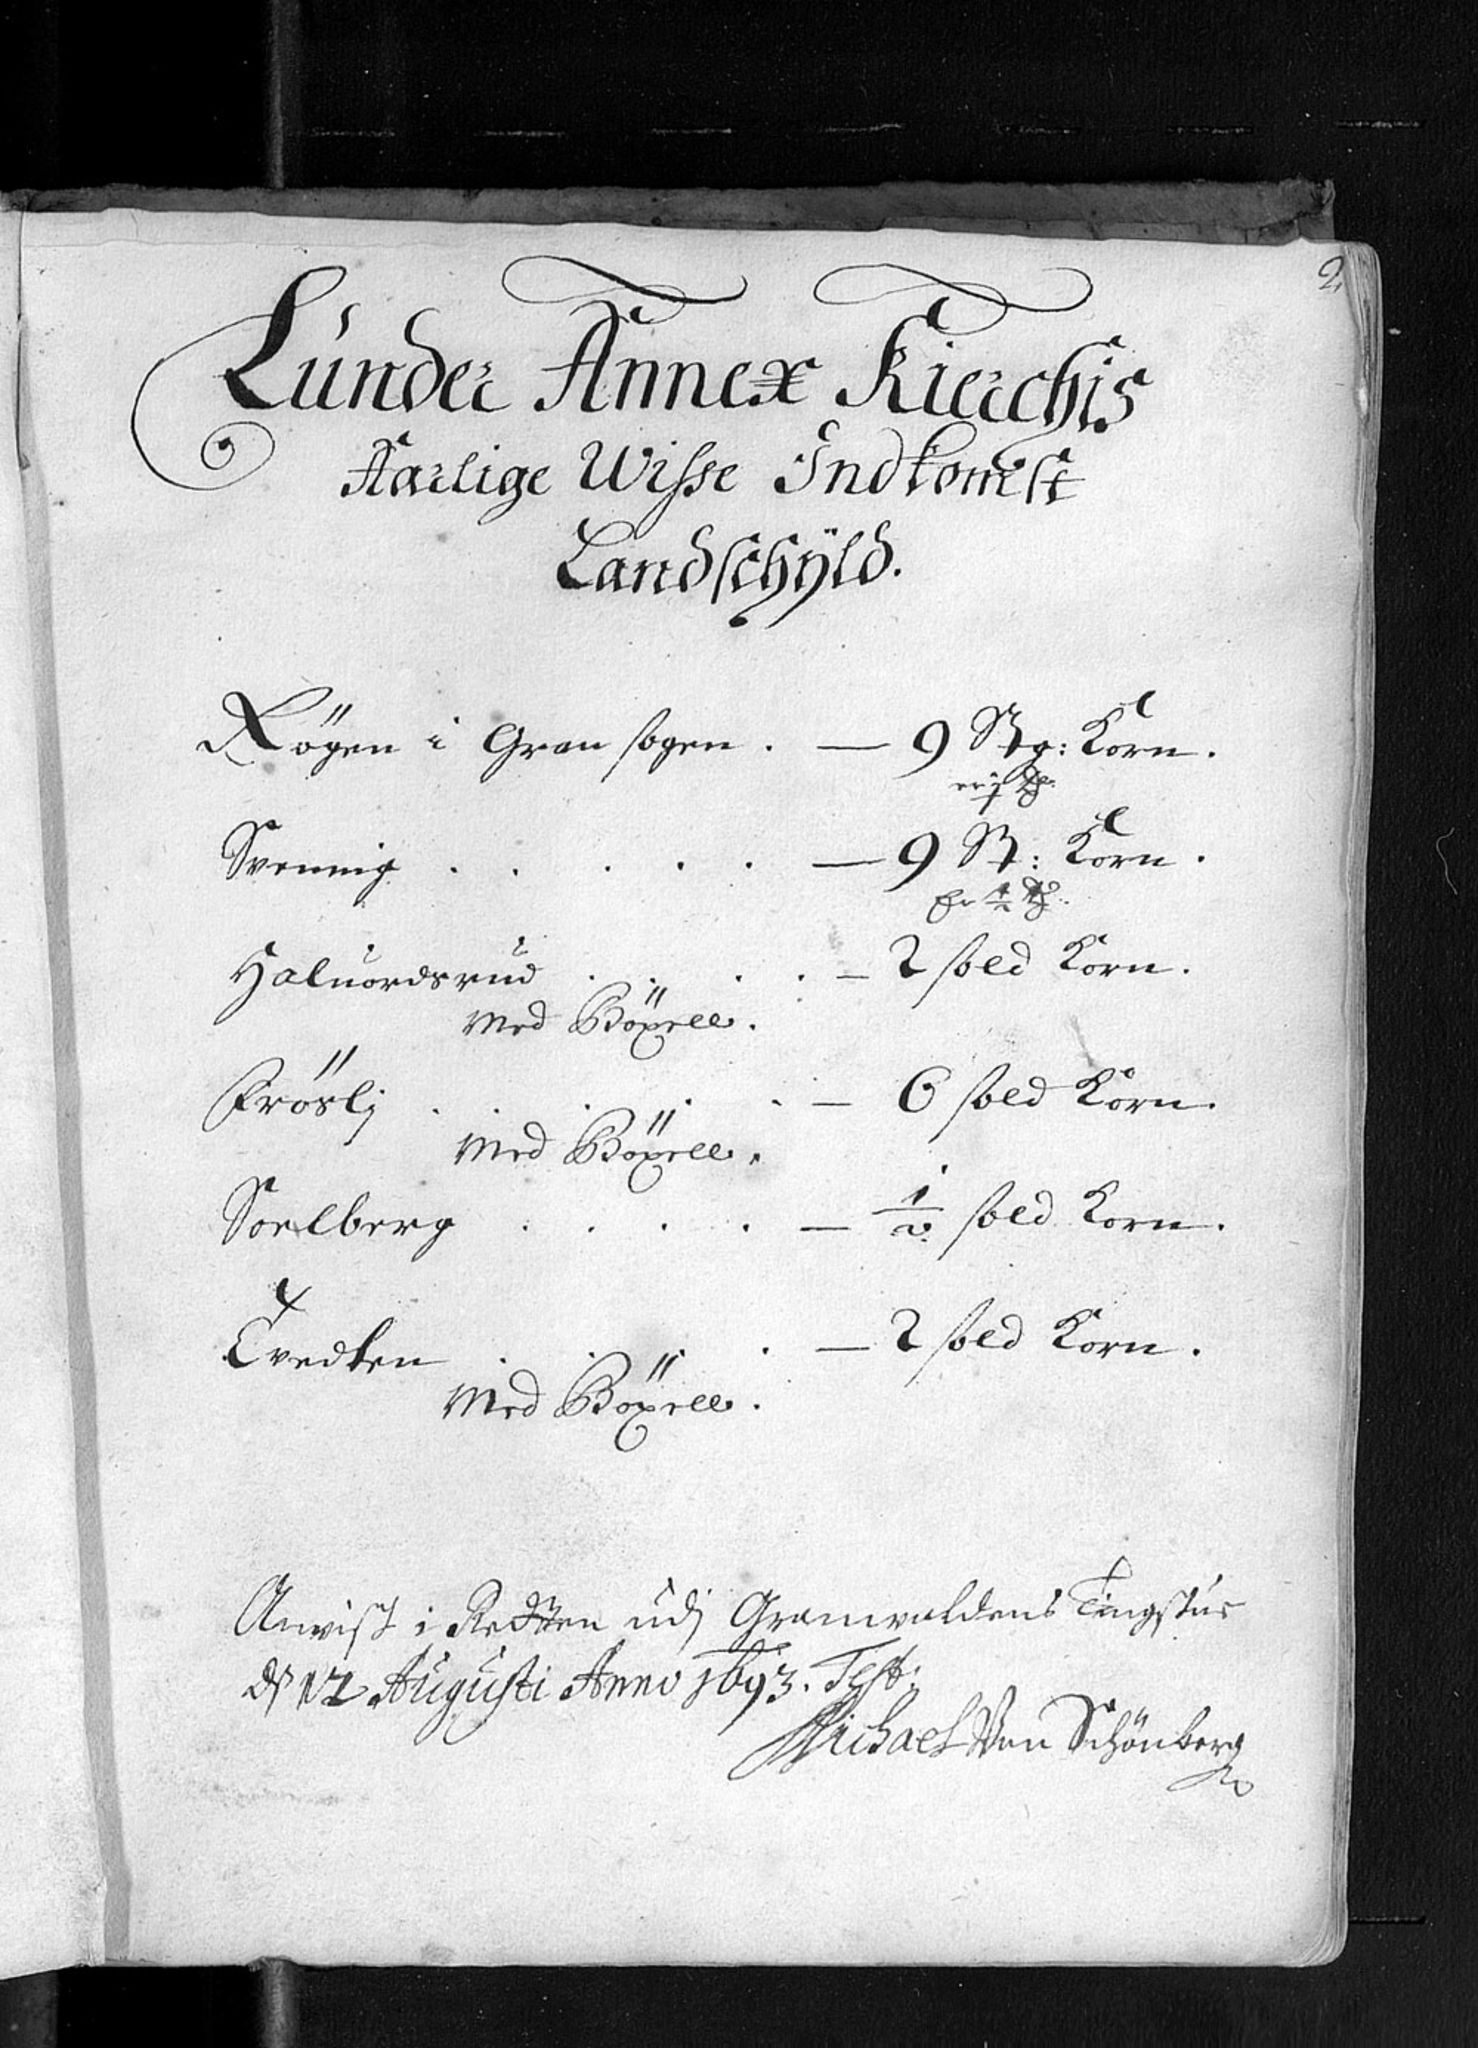 2
Lunder Annex Kierchis
Aarlige Wisse Indkomst
Landschÿld.
Rögen i Gran sogen . — 9 Stg: Korn.
Svennig . . . . . — 9 St: Korn.
Haluordsrud . . . . — 2 sold Korn.
Med Böxell.
Fröslj . . . . . — 6 sold Korn.
Med Böxell.
Soelberg . . . . — 1/2 sold Korn.
Tvedten . . . . — 2 sold Korn.
Med Böxell.
Anvist i Retten udj Granvoldens Tingstue
d. 12 Augusti Anno 1693. Test:
Michael Von Schönberg